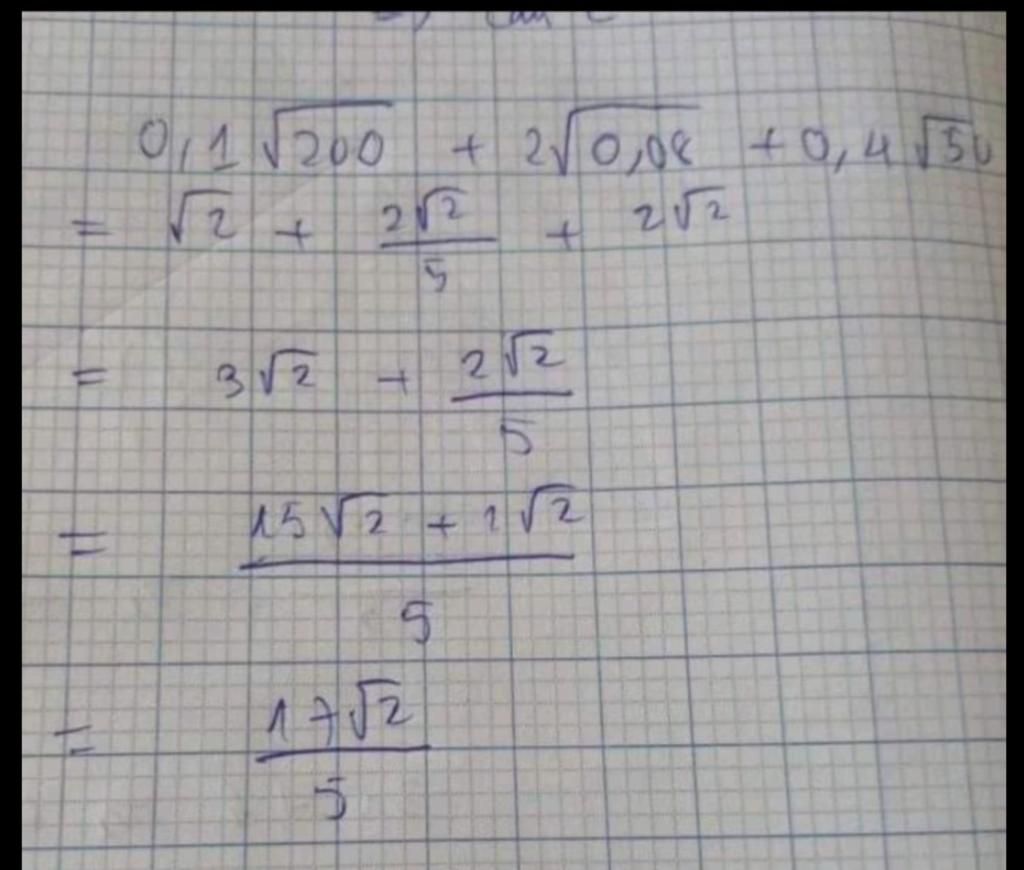 0,1 √200 + 2√0,08 + 0,4 √50
= √2 + 2√2/5 + 2√2
= 3√2 + 2√2/5
= (15√2 + 2√2)/5
= 17√2/5